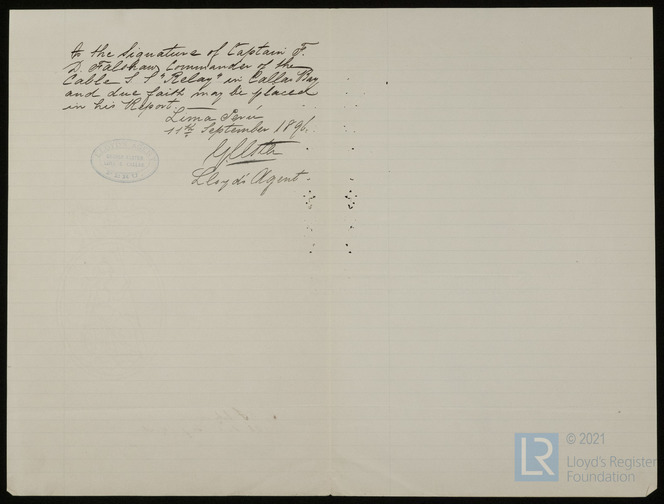 to the Signature of Captain F.
D. Falshaw Commander of the
Cable S. S "Relay" in Callao Bay
and due faith may be placed
in his Report.
Lima Perú
11th September 1896.
Lloyd's Agent.
PERU
LR
© 2021
Lloyd's Register
Foundation